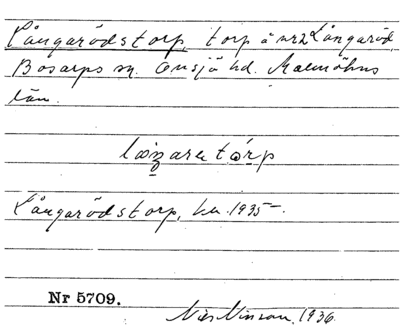 Långarödstorp, torp å nr 2 Långaröd,
Bosarps sn. Onsjö hd. Malmöhus
län.
Långarödstorp, ha. 1935
Nr 5709.
Nils Nilsson, 1936